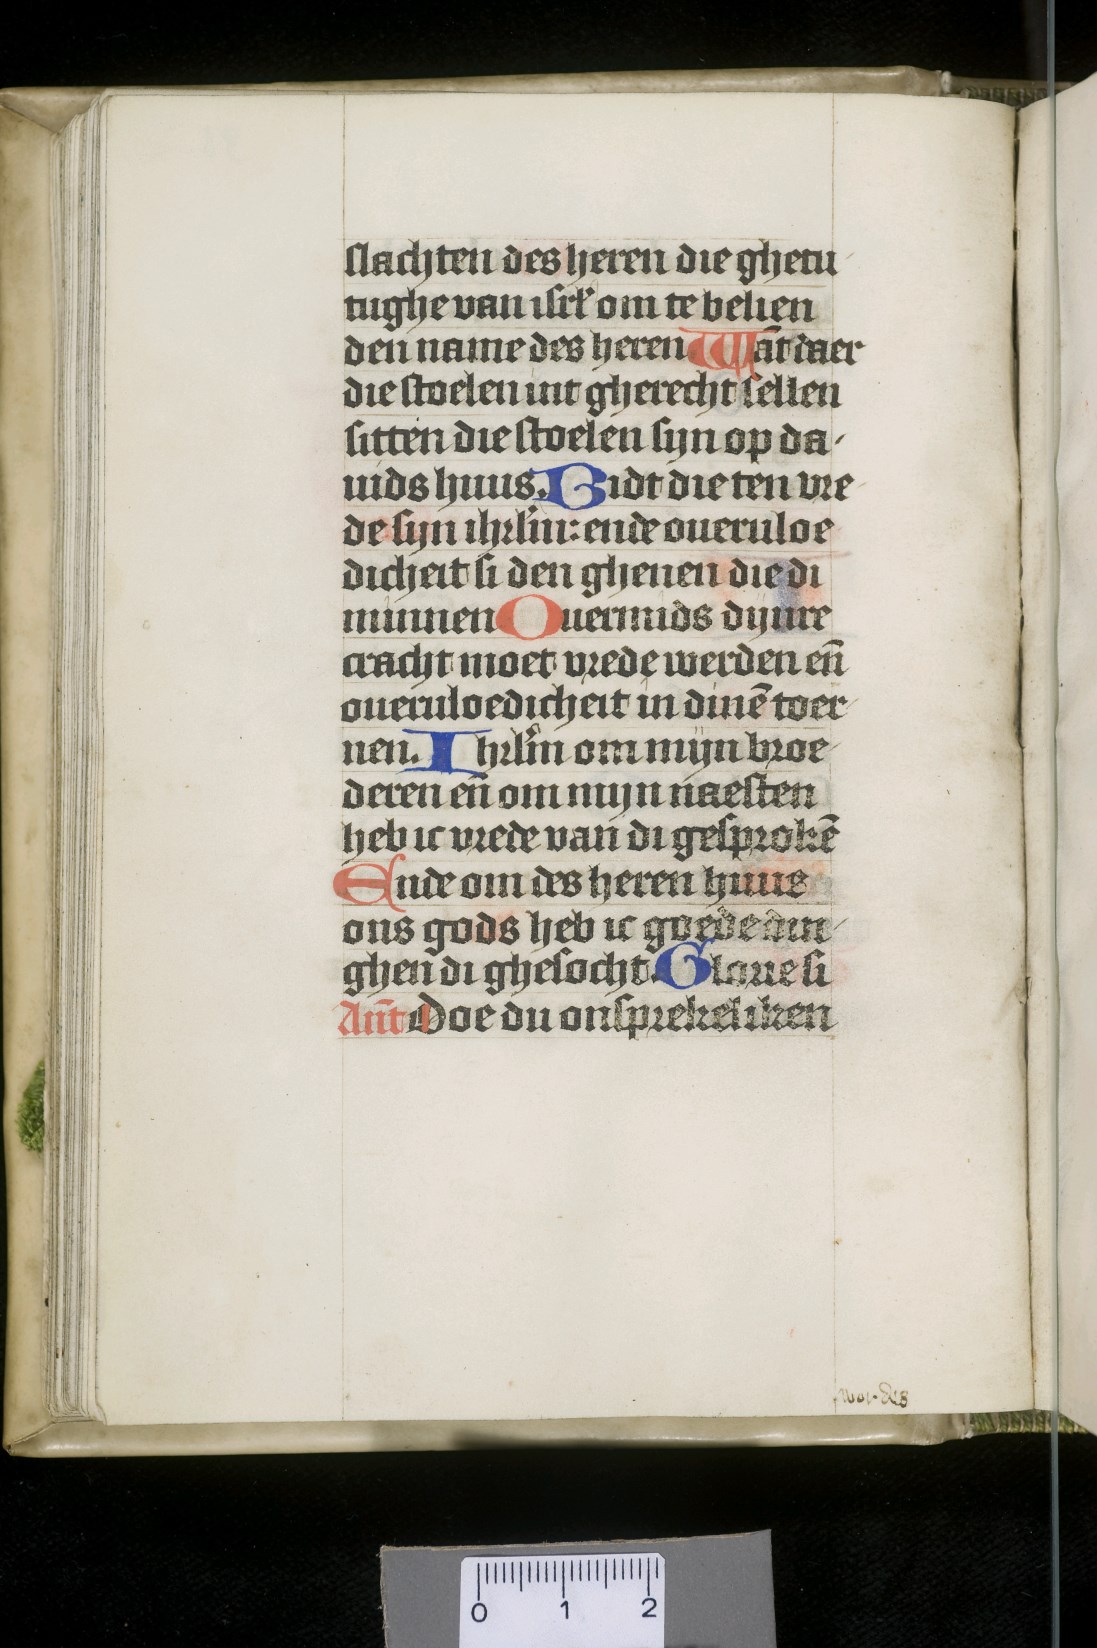 slachten des heren die ghetu
tughe van isrl' om te belien
den name des heren Wāt daer
die stoelen uut gherecht sellen
sitten die stoelen sijn op da
uids huus. Bidt die ten vre
de sijn ihrl'm: ende oueruloe
dicheit si den ghenen die di
minnen Ouermids dijnre
cracht moet vrede werden en̄
oueruloedicheit in dinē toer
nen. Ihrl'm om mijn broe
deren en̄ om mijn naesten
heb ic vrede van di gesprokē
Ende om des heren huus
ons gods heb ic goede din
ghen di ghesocht. Glorie si
An̄t Doe du onsprekeliken
0 1 2